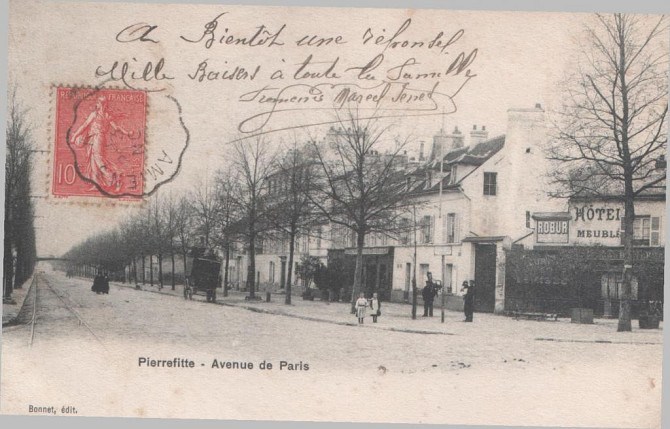 A Bientôt une réponse
Mille Baisers à toute la famille
Marcel
RÉPUBLIQUE FRANÇAISE
10
HÔTEL
MEUBLÉ
ROBUR
Pierrefitte - Avenue de Paris
Bonnet, édit.